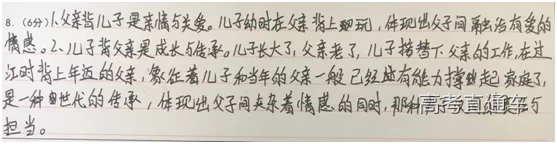 8.(6分)1.父亲背儿子是亲情与关爱。儿子幼时在父亲背上玩,体现出父子间融洽有爱的
情感。2.儿子背父亲是成长与传承。儿子长大了,父亲老了,儿子接替下父亲的工作,在过
江时背上年迈的父亲,象征着儿子和当年的父亲一般已经有能力撑起家庭了,
是一种世代的传承,体现出父子间夹杂着情感的同时,那种
担当。
高考直通车